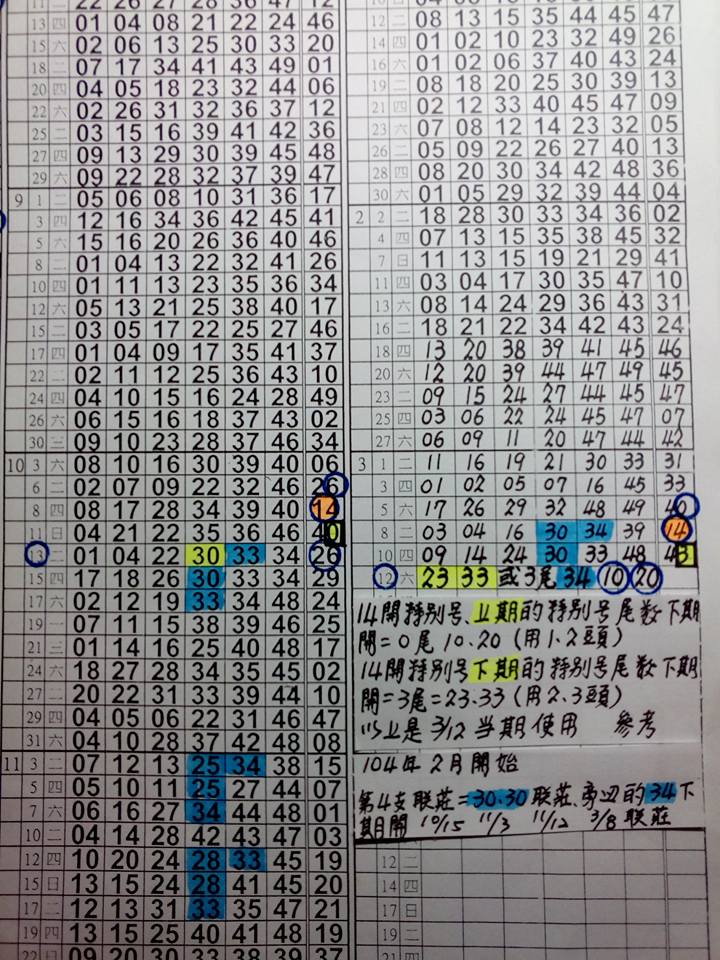 11 二 22 26 27 28 36 47 12
13 四 01 04 08 21 22 24 46
15 六 02 06 13 25 30 33 20
18 二 07 17 34 41 43 49 01
20 四 04 05 18 23 32 44 06
22 六 02 26 31 32 36 37 12
25 二 03 15 16 39 41 42 36
27 四 09 13 29 30 39 45 48
29 六 09 22 28 32 37 39 47
9 1 二 05 06 08 10 31 36 17
3 四 12 16 34 36 42 45 41
5 六 15 16 20 26 36 40 46
8 二 01 04 13 22 32 41 26
10 四 01 11 13 23 35 36 34
12 六 05 13 21 25 38 40 17
15 二 03 05 17 22 25 27 46
17 四 01 04 09 17 35 41 37
22 二 02 11 12 25 36 43 10
24 四 04 10 15 16 24 28 49
26 六 06 15 16 18 37 43 02
30 三 09 10 23 28 37 46 34
10 3 六 08 10 16 30 39 40 06
6 二 02 07 09 22 32 46 26
8 四 08 17 28 34 39 40 14
11 日 04 21 22 35 36 46 40
13 二 01 04 22 30 33 34 26
15 四 17 18 26 30 33 34 29
17 六 02 12 19 33 34 48 24
19 一 07 11 15 38 39 46 25
21 三 01 14 16 25 40 48 17
24 六 18 27 28 34 35 45 02
27 二 20 22 31 33 39 44 10
29 四 04 05 06 22 31 46 47
31 六 04 10 28 37 42 48 08
11 3 二 07 12 13 25 34 38 15
5 四 05 10 11 25 27 44 07
7 六 06 16 27 34 44 48 01
10 二 04 14 28 42 43 47 03
12 四 10 20 24 28 33 45 19
15 日 13 15 24 28 41 45 20
17 二 12 13 31 33 35 47 21
19 四 13 15 25 40 41 48 19
22 日 09 20 30 33 38 39 37
12 二 08 13 15 35 44 45 47
14 四 01 02 10 23 32 49 26
16 六 01 02 06 37 40 43 24
19 二 08 18 20 25 30 39 13
21 四 02 12 33 40 45 47 09
23 六 07 08 12 14 23 32 05
26 二 05 09 22 26 27 40 13
28 四 08 20 30 34 42 48 36
30 六 01 05 29 32 39 44 04
2 2 二 18 28 30 33 34 36 02
4 四 07 13 15 35 38 45 32
7 日 11 13 15 19 21 29 41
11 四 03 04 17 30 35 47 10
13 六 08 14 24 29 36 43 31
16 二 18 21 22 34 42 43 24
18 四 13 20 38 39 41 45 46
20 六 12 20 39 44 47 49 45
23 二 09 15 24 27 44 45 47
25 四 03 06 22 24 45 47 07
27 六 06 09 11 20 47 44 42
3 1 二 11 16 19 21 30 33 31
3 四 01 02 05 07 16 45 33
5 六 17 26 29 32 48 49 40
8 二 03 04 16 30 34 39 14
10 四 09 14 24 30 33 48 43
12 六 23 33 或3尾 34 10 20
14開特別号、上期的特別号尾数下期
開=0尾 10.20 (用1.2頭)
14開特別号下期的特別号尾数下期
開=3尾=23.33 (用2.3頭)
以上是 3/12 当期使用 參考
104年2月開始
第4支联莊=30.30联莊、旁边的34下
期開 10/15 11/3 11/12 3/8 联莊
12 二
14 四
17 日
19 二
21 四